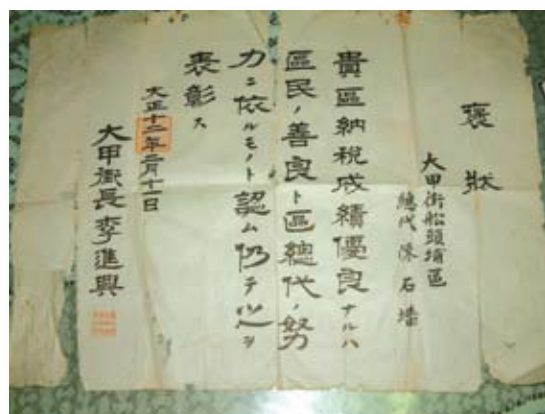 褒狀
大甲街船頭埔區
總代 陳石墻
貴區納稅成績優良ナルハ
區民ノ善良ト區總代ノ努
力ニ依ルモノト認ム仍テ之ヲ
表彰ス
大正十二年二月十一日
大甲街長 李進興